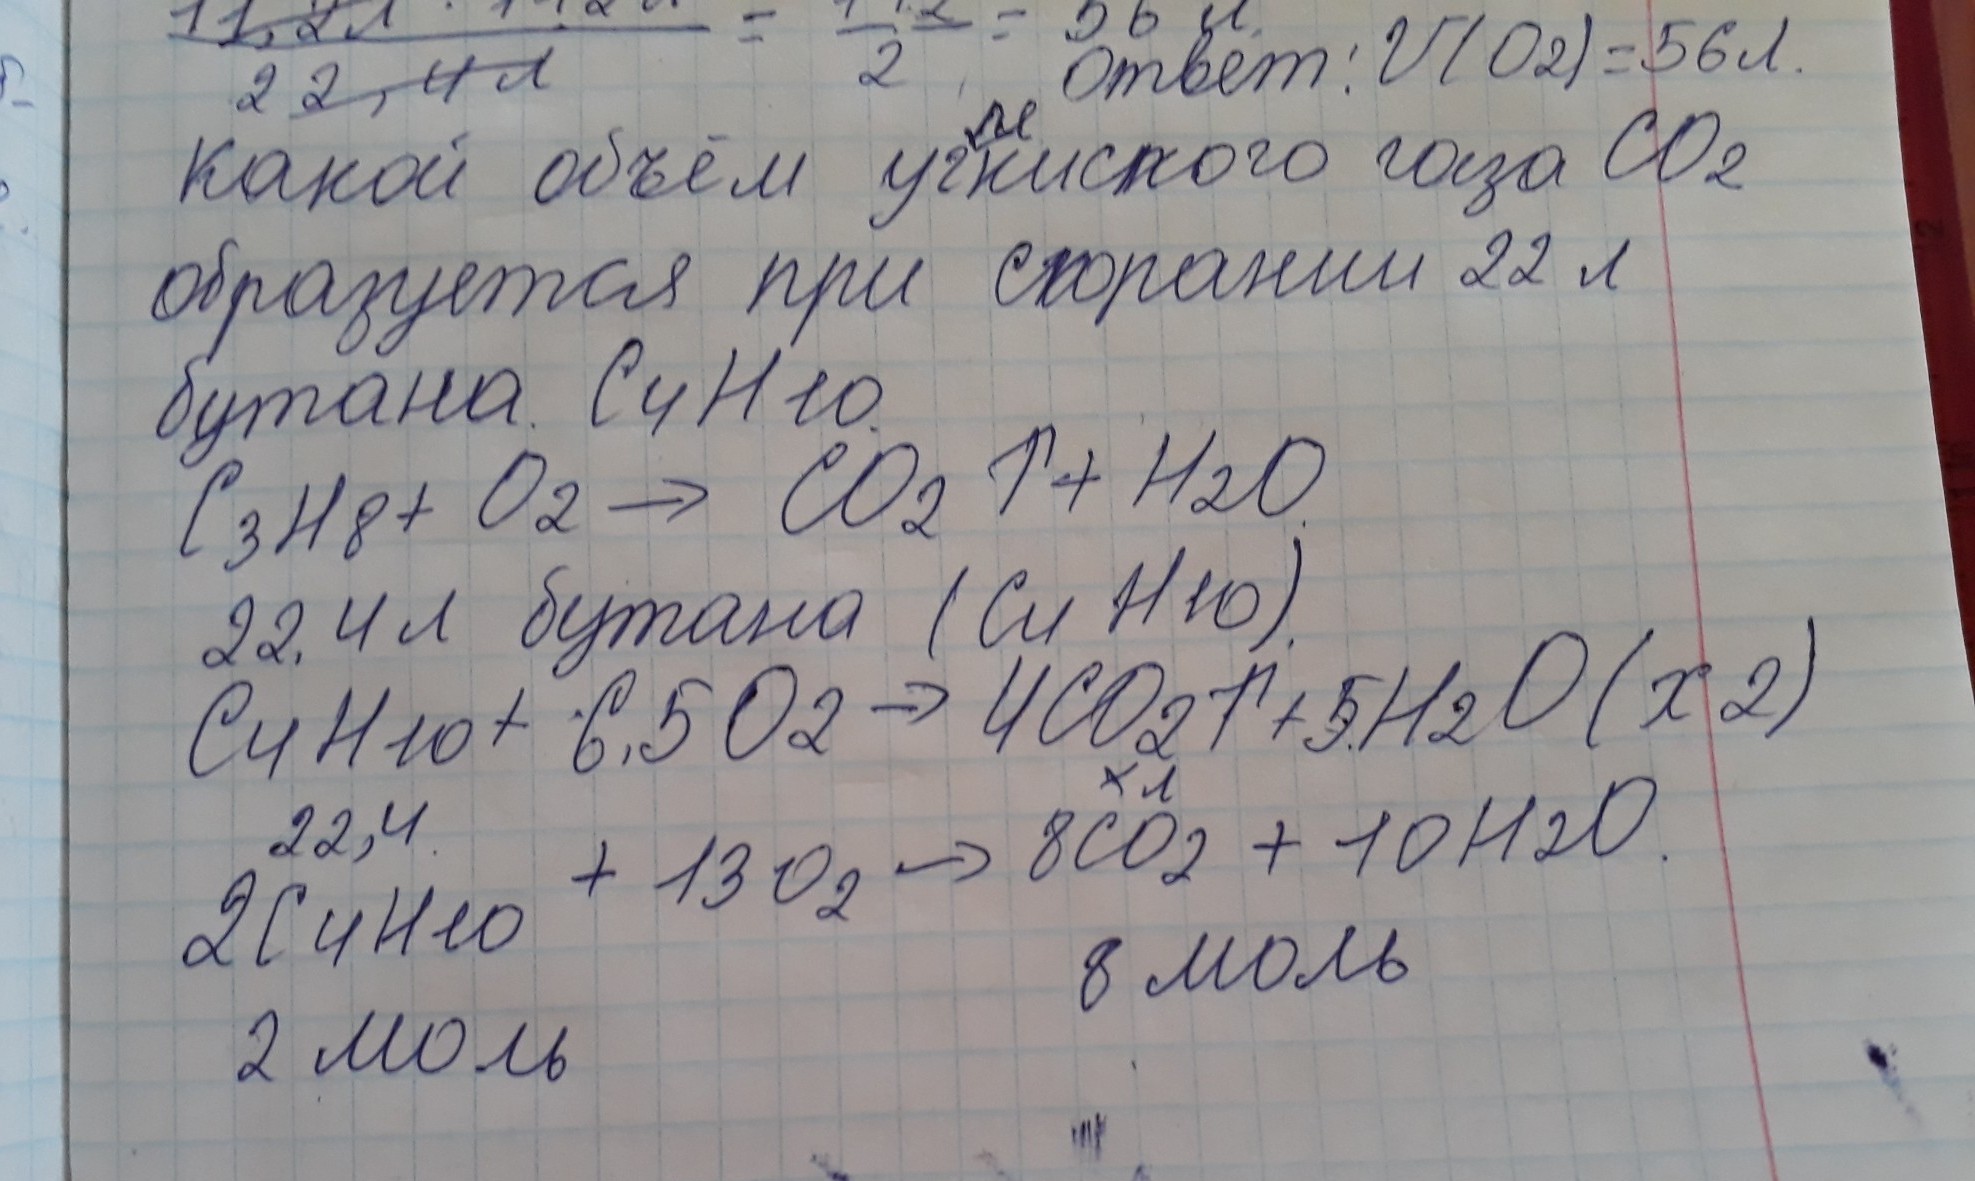 22,4л 2 , Ответ: V(O2)=56л.
= = 56 л.
Какой объём углкислого газа CO2
образуется при сгорании 22 л
бутана. C4H10.
C3H8 + O2 → CO2 ↑ + H2O.
22,4л бутана (C4H10).
C4H10 + 6,5O2 → 4CO2↑ + 5H2O (x2)
22,4 х л
2C4H10 + 13O2 → 8CO2 + 10H2O.
8 моль
2 моль